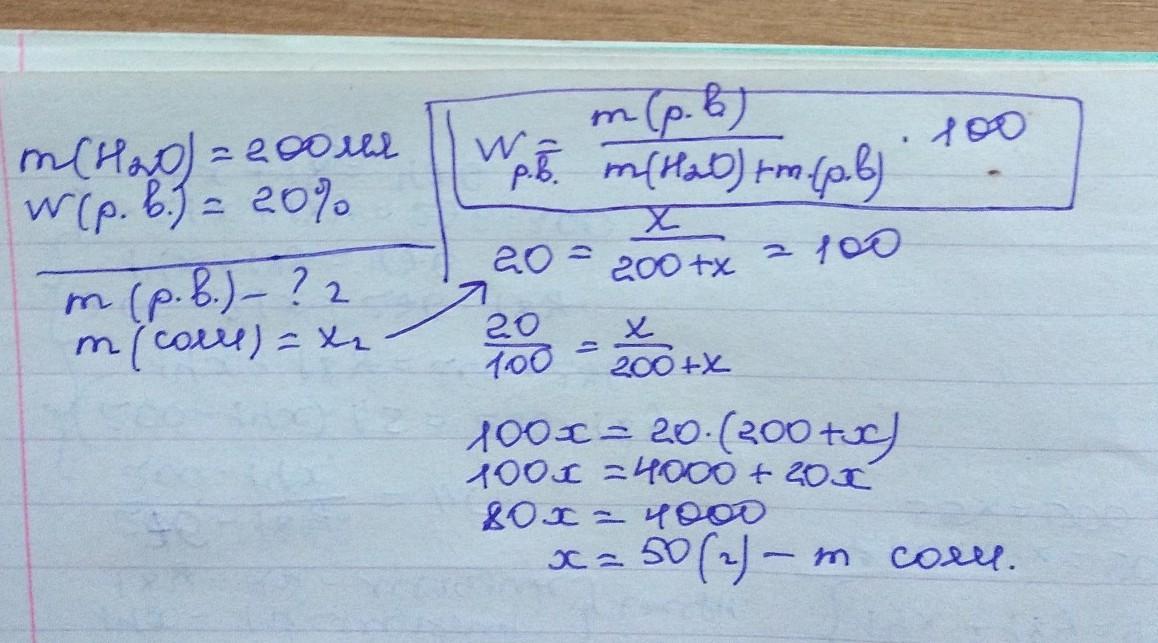 m(H₂O) = 200мл
W(р.в.) = 20%
m(р.в.) - ? г
m(соли) = xг
W р.в. = m(р.в) / m(H₂O)+m.(р.в) · 100
20 = x / 200+x = 100
20/100 = x / 200+x
100x = 20·(200+x)
100x = 4000 + 20x
80x = 4000
x = 50(г) - m соли.